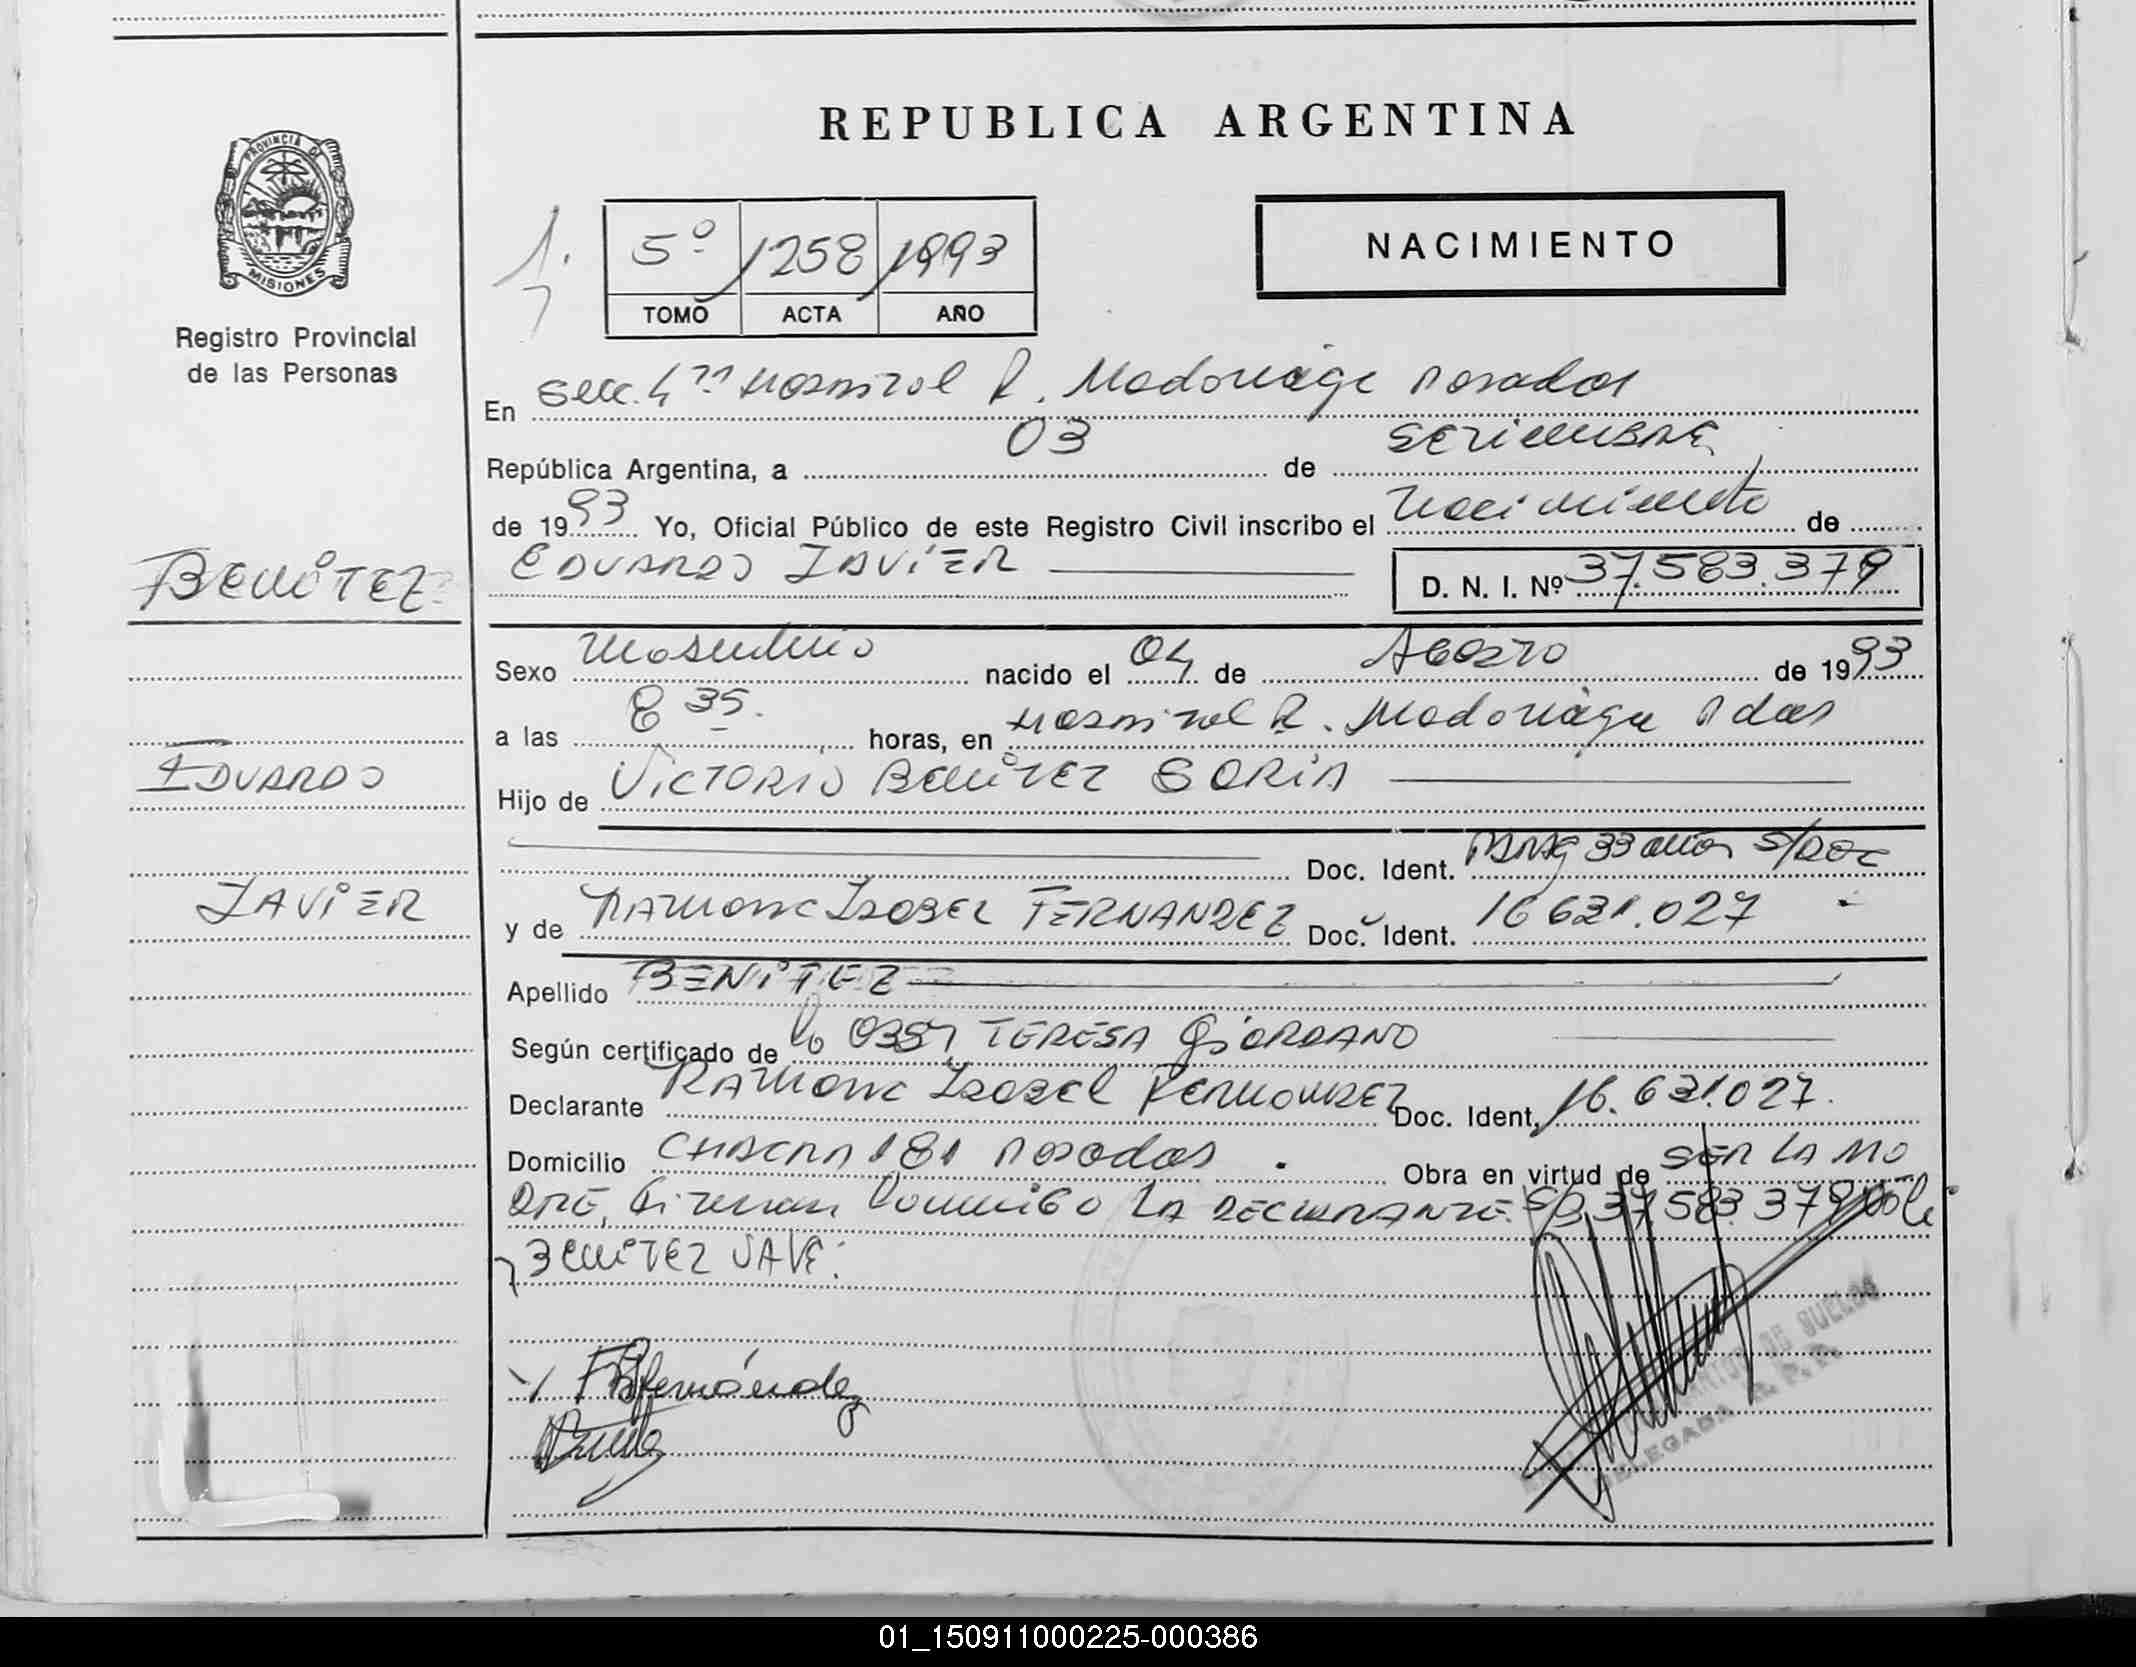 REPUBLICA ARGENTINA
PROVINCIA DE
MISIONES
Registro Provincial
de las Personas
5º 1258 1993
TOMO ACTA AÑO
NACIMIENTO
En Secc. 4ta Hospital R. Madariaga Posadas
República Argentina, a 03 de SETIEMBRE
de 1993 Yo, Oficial Público de este Registro Civil inscribo el Nacimiento de
EDUARDO JAVIER D. N. I. Nº 37.583.379
BENITEZ
EDUARDO
JAVIER
Sexo Masculino nacido el 04 de AGOSTO de 1993
a las 8 35 horas, en Hospital R. Madariaga Pdas
Hijo de VICTORIO BENITEZ SORIA
Doc. Ident. PARAG 33 años S/DOC
y de RAMONA ISABEL FERNANDEZ Doc. Ident. 16 631.027
Apellido BENITEZ
Según certificado de TERESA GIORDANO
Declarante RAMONA ISABEL FERNANDEZ Doc. Ident. 16.631.027.
Domicilio CHACRA 181 Posadas. Obra en virtud de SER LA MA
DRE, Firman Conmigo LA DECLARANTE. 37.583.379
BENITEZ VALE.
Fernández
DE SUELDO
DELEGADA R.P.P.
01_150911000225-000386